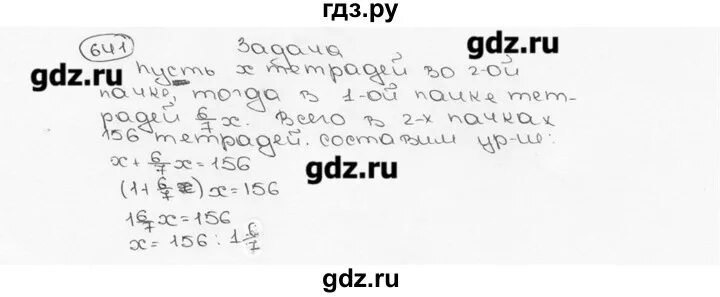 гдз.ру
641 Задача gdz.ru
gdz.ru Пусть x тетрадей во 2-ой
пачке, тогда в 1-ой пачке тет-
радей 6/7 x. Всего в 2-х пачках
156 тетрадей. составим ур-ие:
x + 6/7 x = 156
gdz.ru
(1 + 6/7) x = 156
1 6/7 x = 156
x = 156 : 1 6/7
gdz.ru